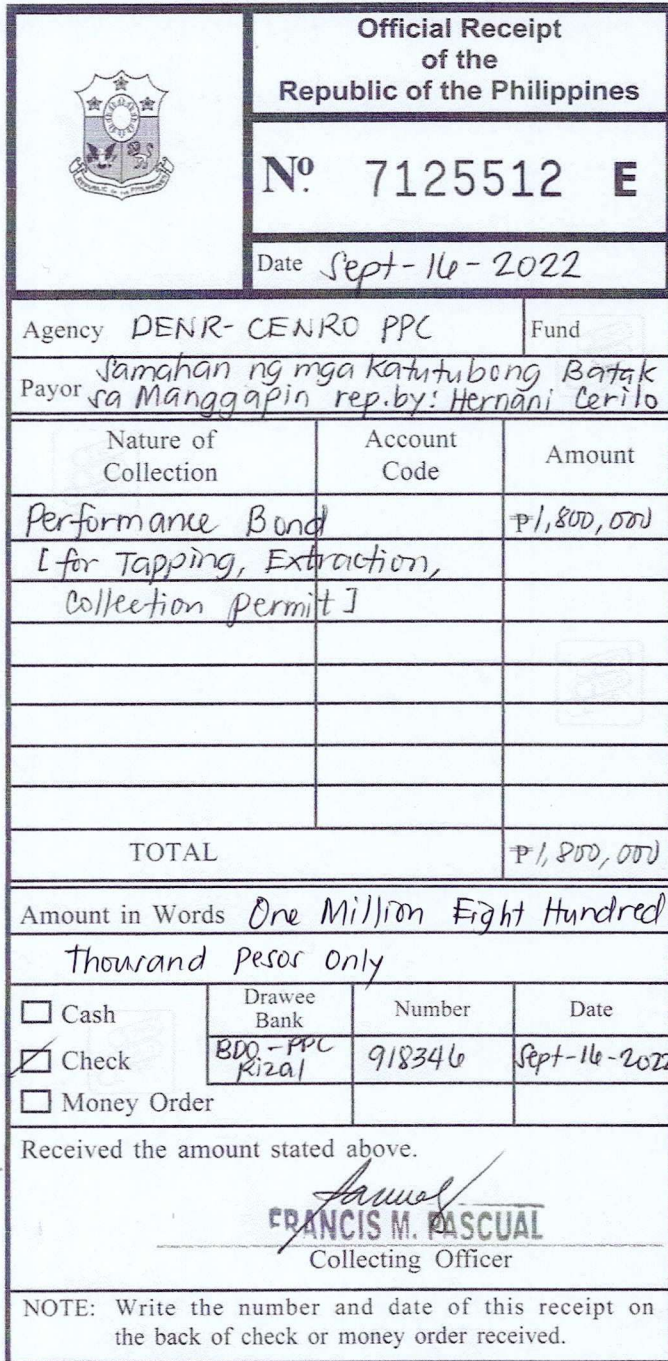 REPUBLIC OF THE PHILIPPINES
Official Receipt
of the
Republic of the Philippines
Nº 7125512 E
Date Sept-16-2022
Agency DENR-CENRO PPC Fund
Payor Samahan ng mga Katutubong Batak
sa Manggapin rep.by: Hernani Cerilo
Nature of Collection Account Code Amount
Performance Bond ₱1,800,000
[for Tapping, Extraction,
Collection permit]
TOTAL ₱1,800,000
Amount in Words One Million Eight Hundred
Thousand Pesos Only
Cash Drawee Bank Number Date
Check BDO-PPC Rizal 918346 Sept-16-2022
Money Order
Received the amount stated above.
FRANCIS M. PASCUAL
Collecting Officer
NOTE: Write the number and date of this receipt on
the back of check or money order received.